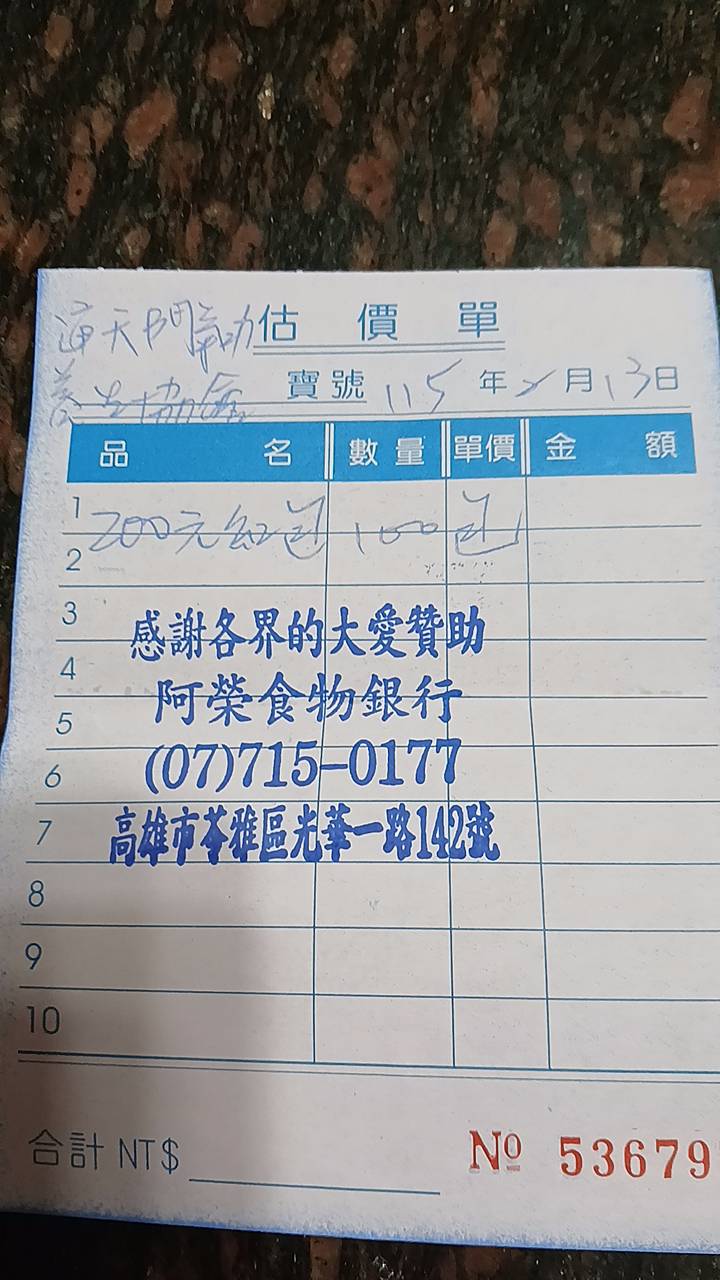 通天門氣功 估價單
養生協會 寶號 115年2月13日
品名 數量 單價 金額
1
200元紅包 100包
2
3
感謝各界的大愛贊助
4
阿榮食物銀行
5
6 (07)715-0177
7 高雄市苓雅區光華一路142號
8
9
10
合計 NT$ No 53679